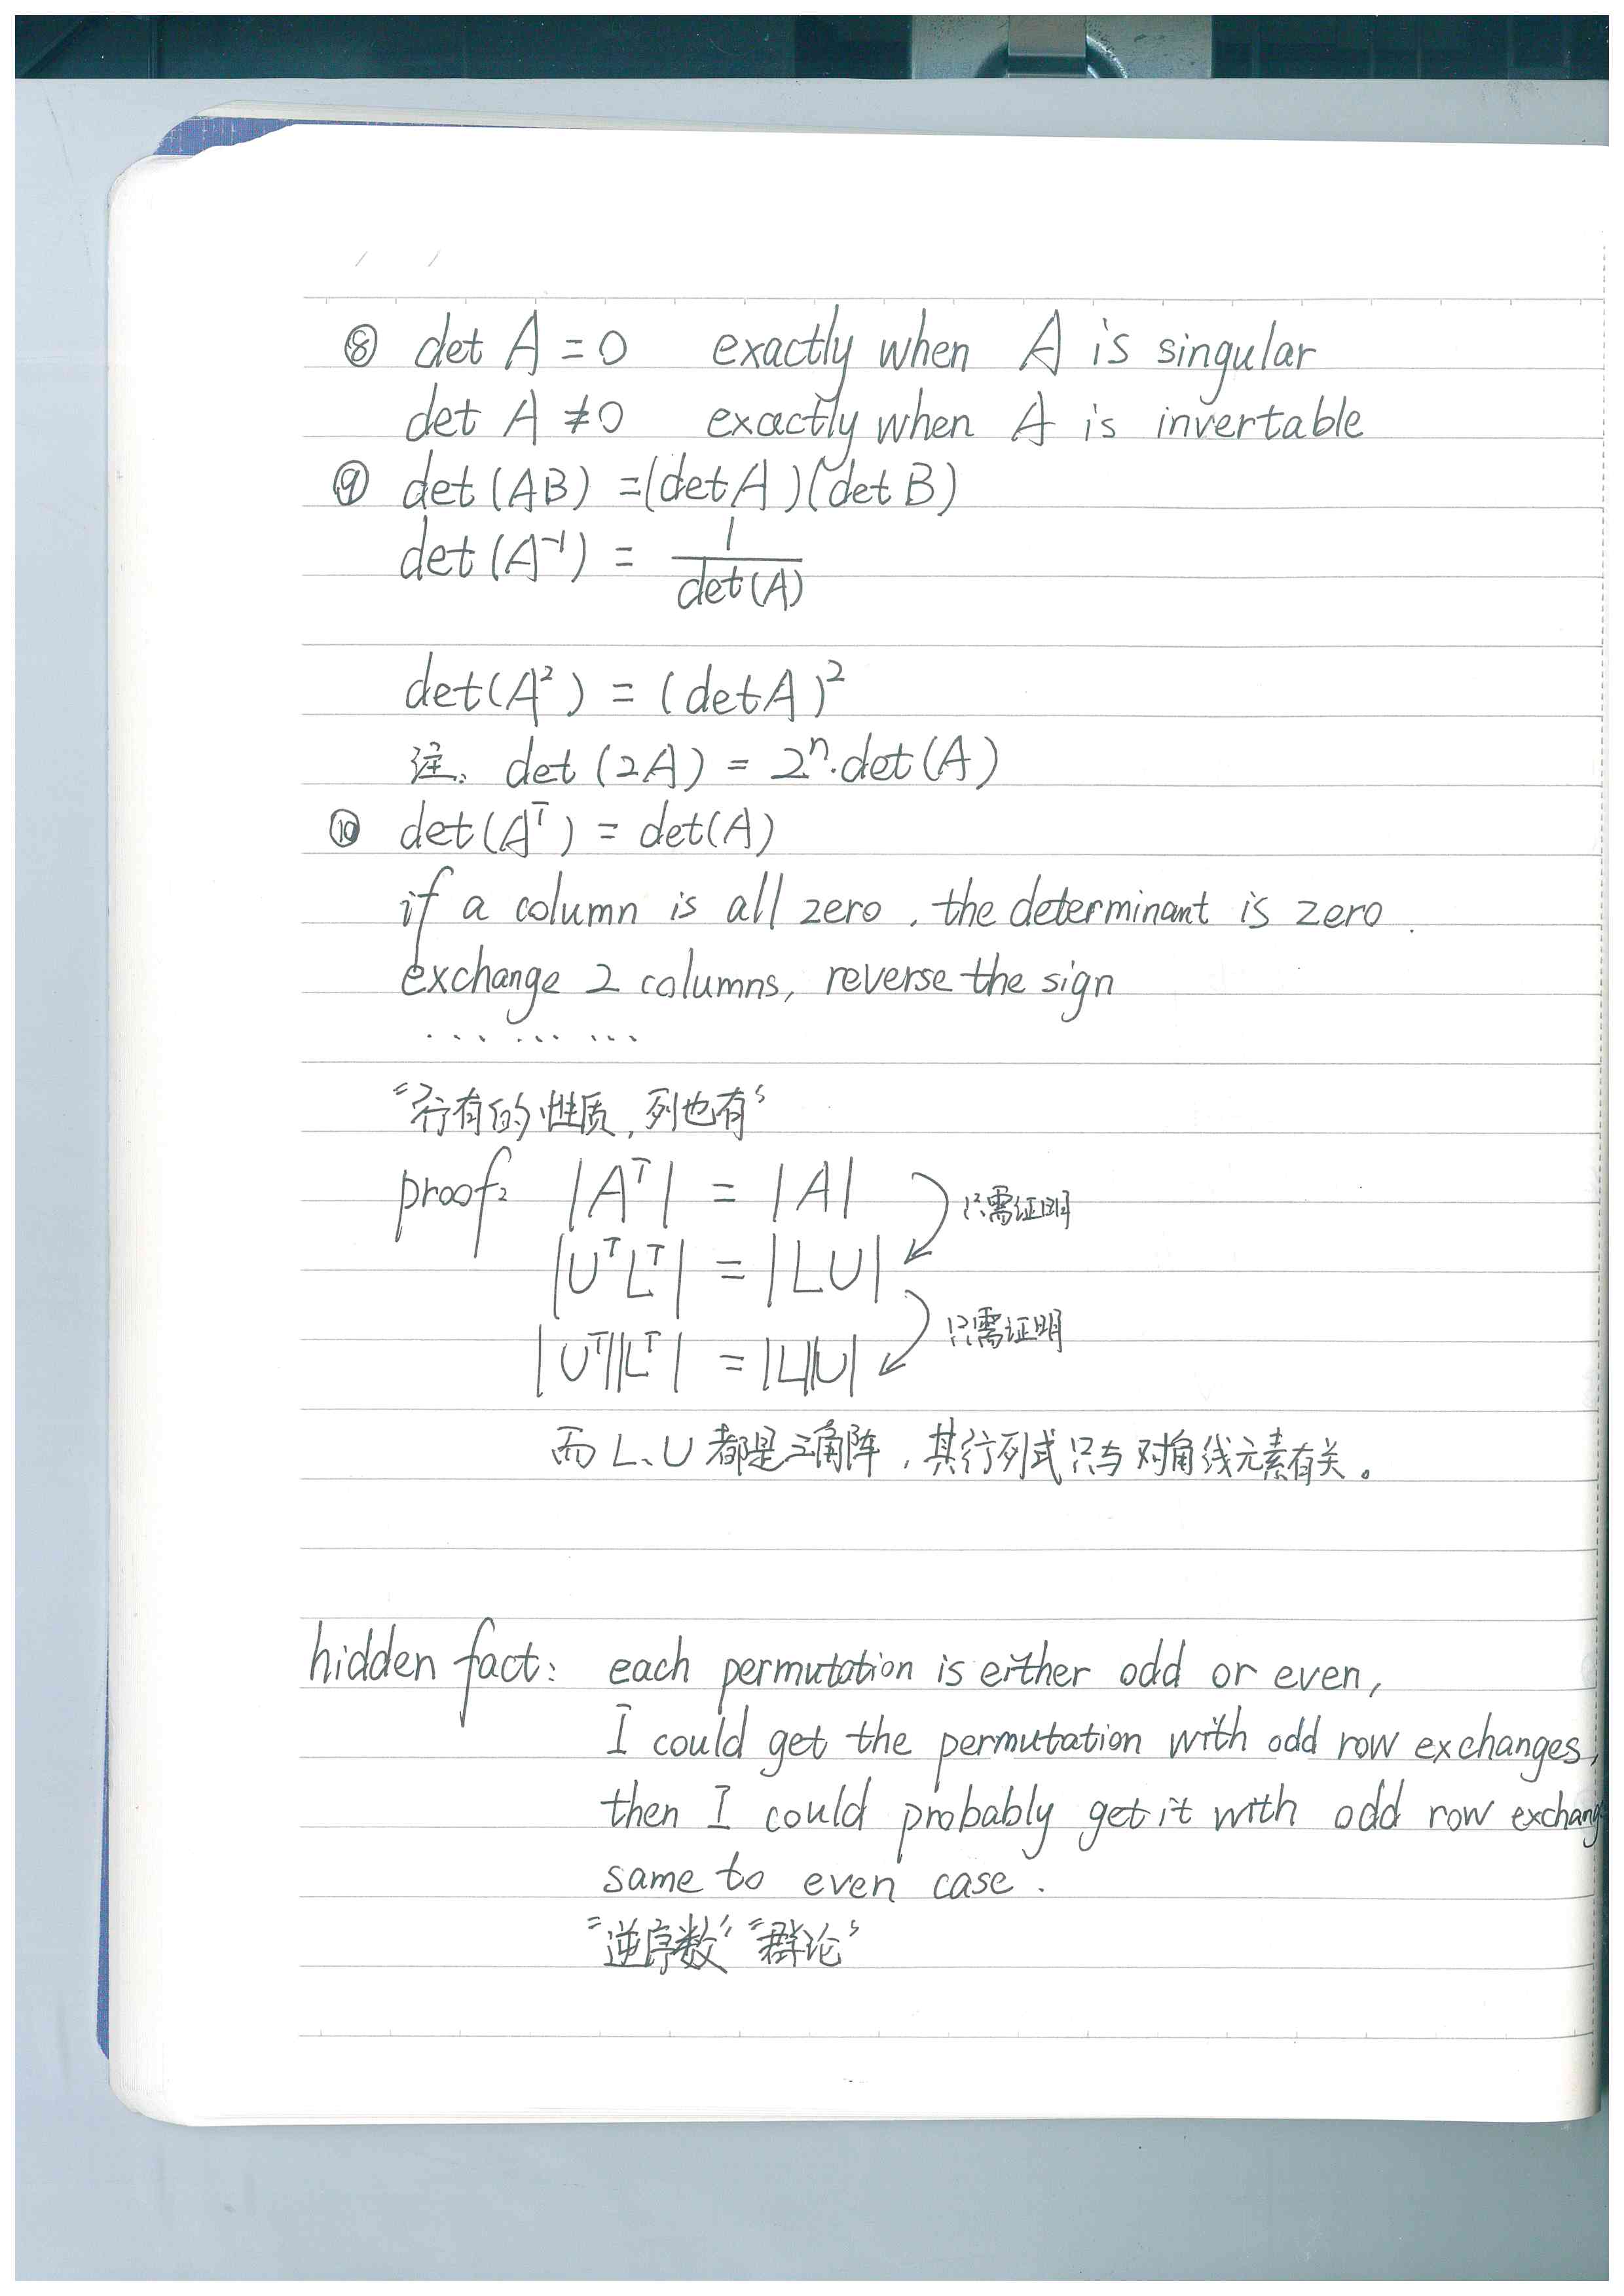 ⑧ det A = 0 exactly when A is singular
det A ≠ 0 exactly when A is invertable
⑨ det (AB) = (det A)(det B)
det (A⁻¹) = 1/det(A)
det(A²) = (det A)²
注: det (2A) = 2ⁿ·det(A)
⑩ det(Aᵀ) = det(A)
if a column is all zero, the determinant is zero.
exchange 2 columns, reverse the sign
... ... ...
"行有的性质,列也有"
proof: |Aᵀ| = |A| 只需证明
|UᵀLᵀ| = |LU| 只需证明
|Uᵀ||Lᵀ| = |L||U|
而 L、U 都是三角阵,其行列式只与对角线元素有关。
hidden fact: each permutation is either odd or even,
I could get the permutation with odd row exchanges,
then I could probably get it with odd row exchang
same to even case.
"逆序数" "群论"